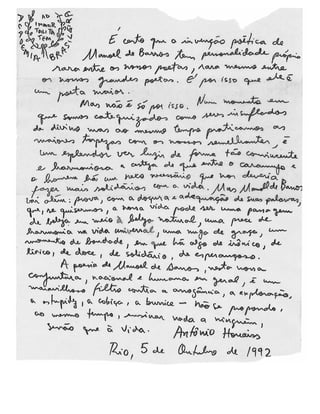 AD IMMORTALITATEM
É certo que a invenção poética de
Manoel de Barros tem personalidade própria
rara entre os nossos poetas, rara mesmo entre
os nossos grandes poetas. É por isso que ele é
um poeta maior.
Mas não é só por isso. Num momento em
que somos catequizados como seres insuflados
de divino mas ao mesmo tempo praticamos as
maiores torpezas com os nossos semelhantes, é
um esplendor ver luzir de forma tão convincente
e harmoniosa a certeza de que entre o caramujo e
o homem há um nexo necessário que nos deveria
fazer mais solidários com a vida. Mas Manoel de Barros
vai além: prova, com a doçura e adequação de suas palavras,
que, se quisermos, a nossa vida pode ser uma passagem
de beleza em meio à beleza natural, uma prece de
harmonia na vida universal, uma nuga de graça, um
momento de bondade, em que há algo de irônico, de
lírico, de doce, de solidário, de esperançoso.
A poesia de Manoel de Barros, nesta nossa
conjuntura, nacional e humana em geral, é um
maravilhoso filtro contra a arrogância, a exploração,
a estupidez, a cobiça, a burrice — não se propondo,
ao mesmo tempo, ensinar nada a ninguém,
senão que à vida. Antônio Houaiss
Rio, 5 de Outubro de 1992